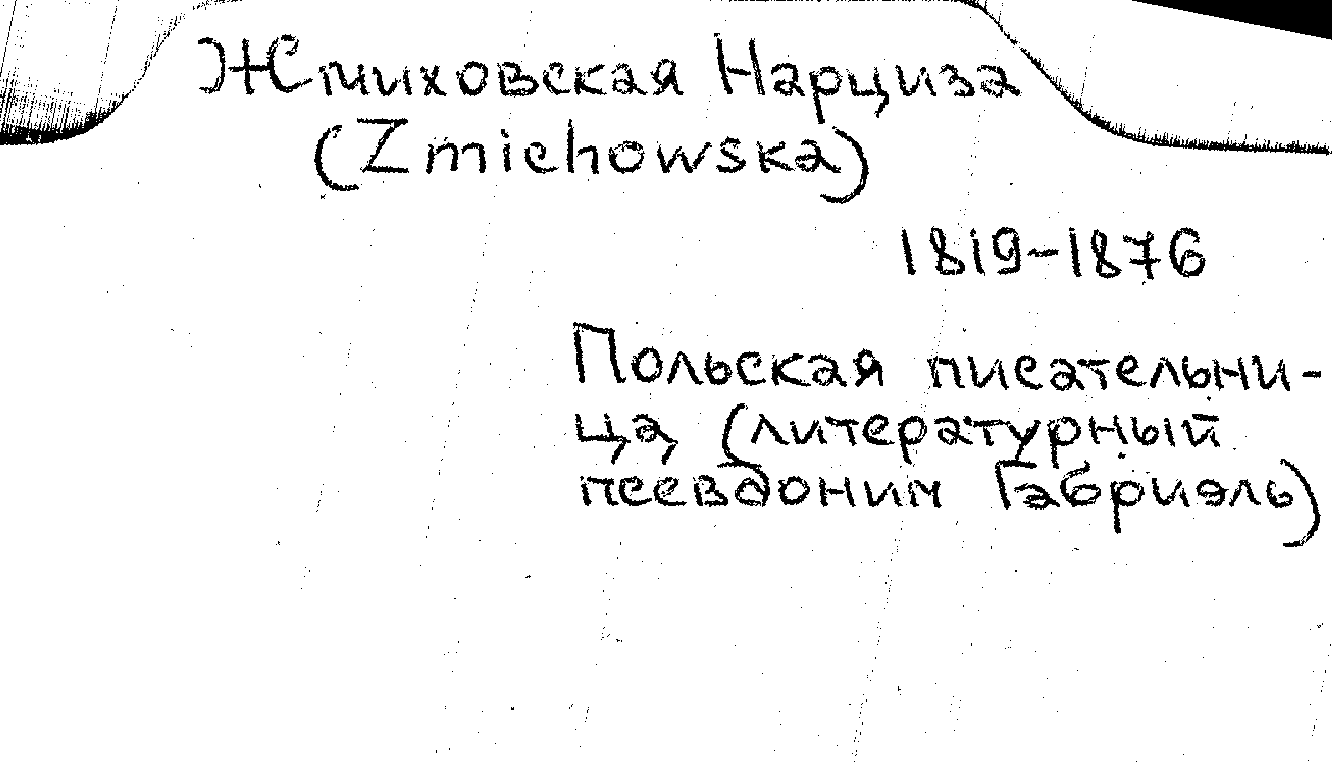 Жмиховская Нарциза
(Zmichowska)
1819-1876
Польская писательни-
ца (литературный
псевдоним Габриэль)